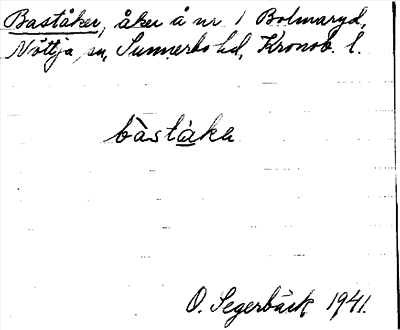 Baståker, åker å nr 1 Bolmaryd,
Nöttja sn, Sunnerbo hd, Kronob. l.
bàståka
O. Segerbäck 1941.